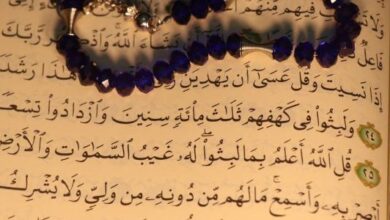 فِيهِم مِّنْهُمْ
فَاعِلٌ يَشَآءَ ٱللَّهُ وَٱذْكُر رَّبَّكَ
إِذَا نَسِيتَ وَقُلْ عَسَىٰٓ أَن يَهْدِيَنِ هَٰذَا رَشَدًا
٢٤ وَلَبِثُوا۟ فِى كَهْفِهِمْ ثَلَٰثَ مِا۟ئَةٍ سِنِينَ وَٱزْدَادُوا۟ تِسْعًا
٢٥ قُلِ ٱللَّهُ أَعْلَمُ بِمَا لَبِثُوا۟ ۖ لَهُۥ غَيْبُ ٱلسَّمَٰوَٰتِ وَٱلْأَرْضِ
أَبْصِرْ بِهِۦ وَأَسْمِعْ ۚ مَا لَهُم مِّن دُونِهِۦ مِن وَلِىٍّ وَلَا يُشْرِكُ